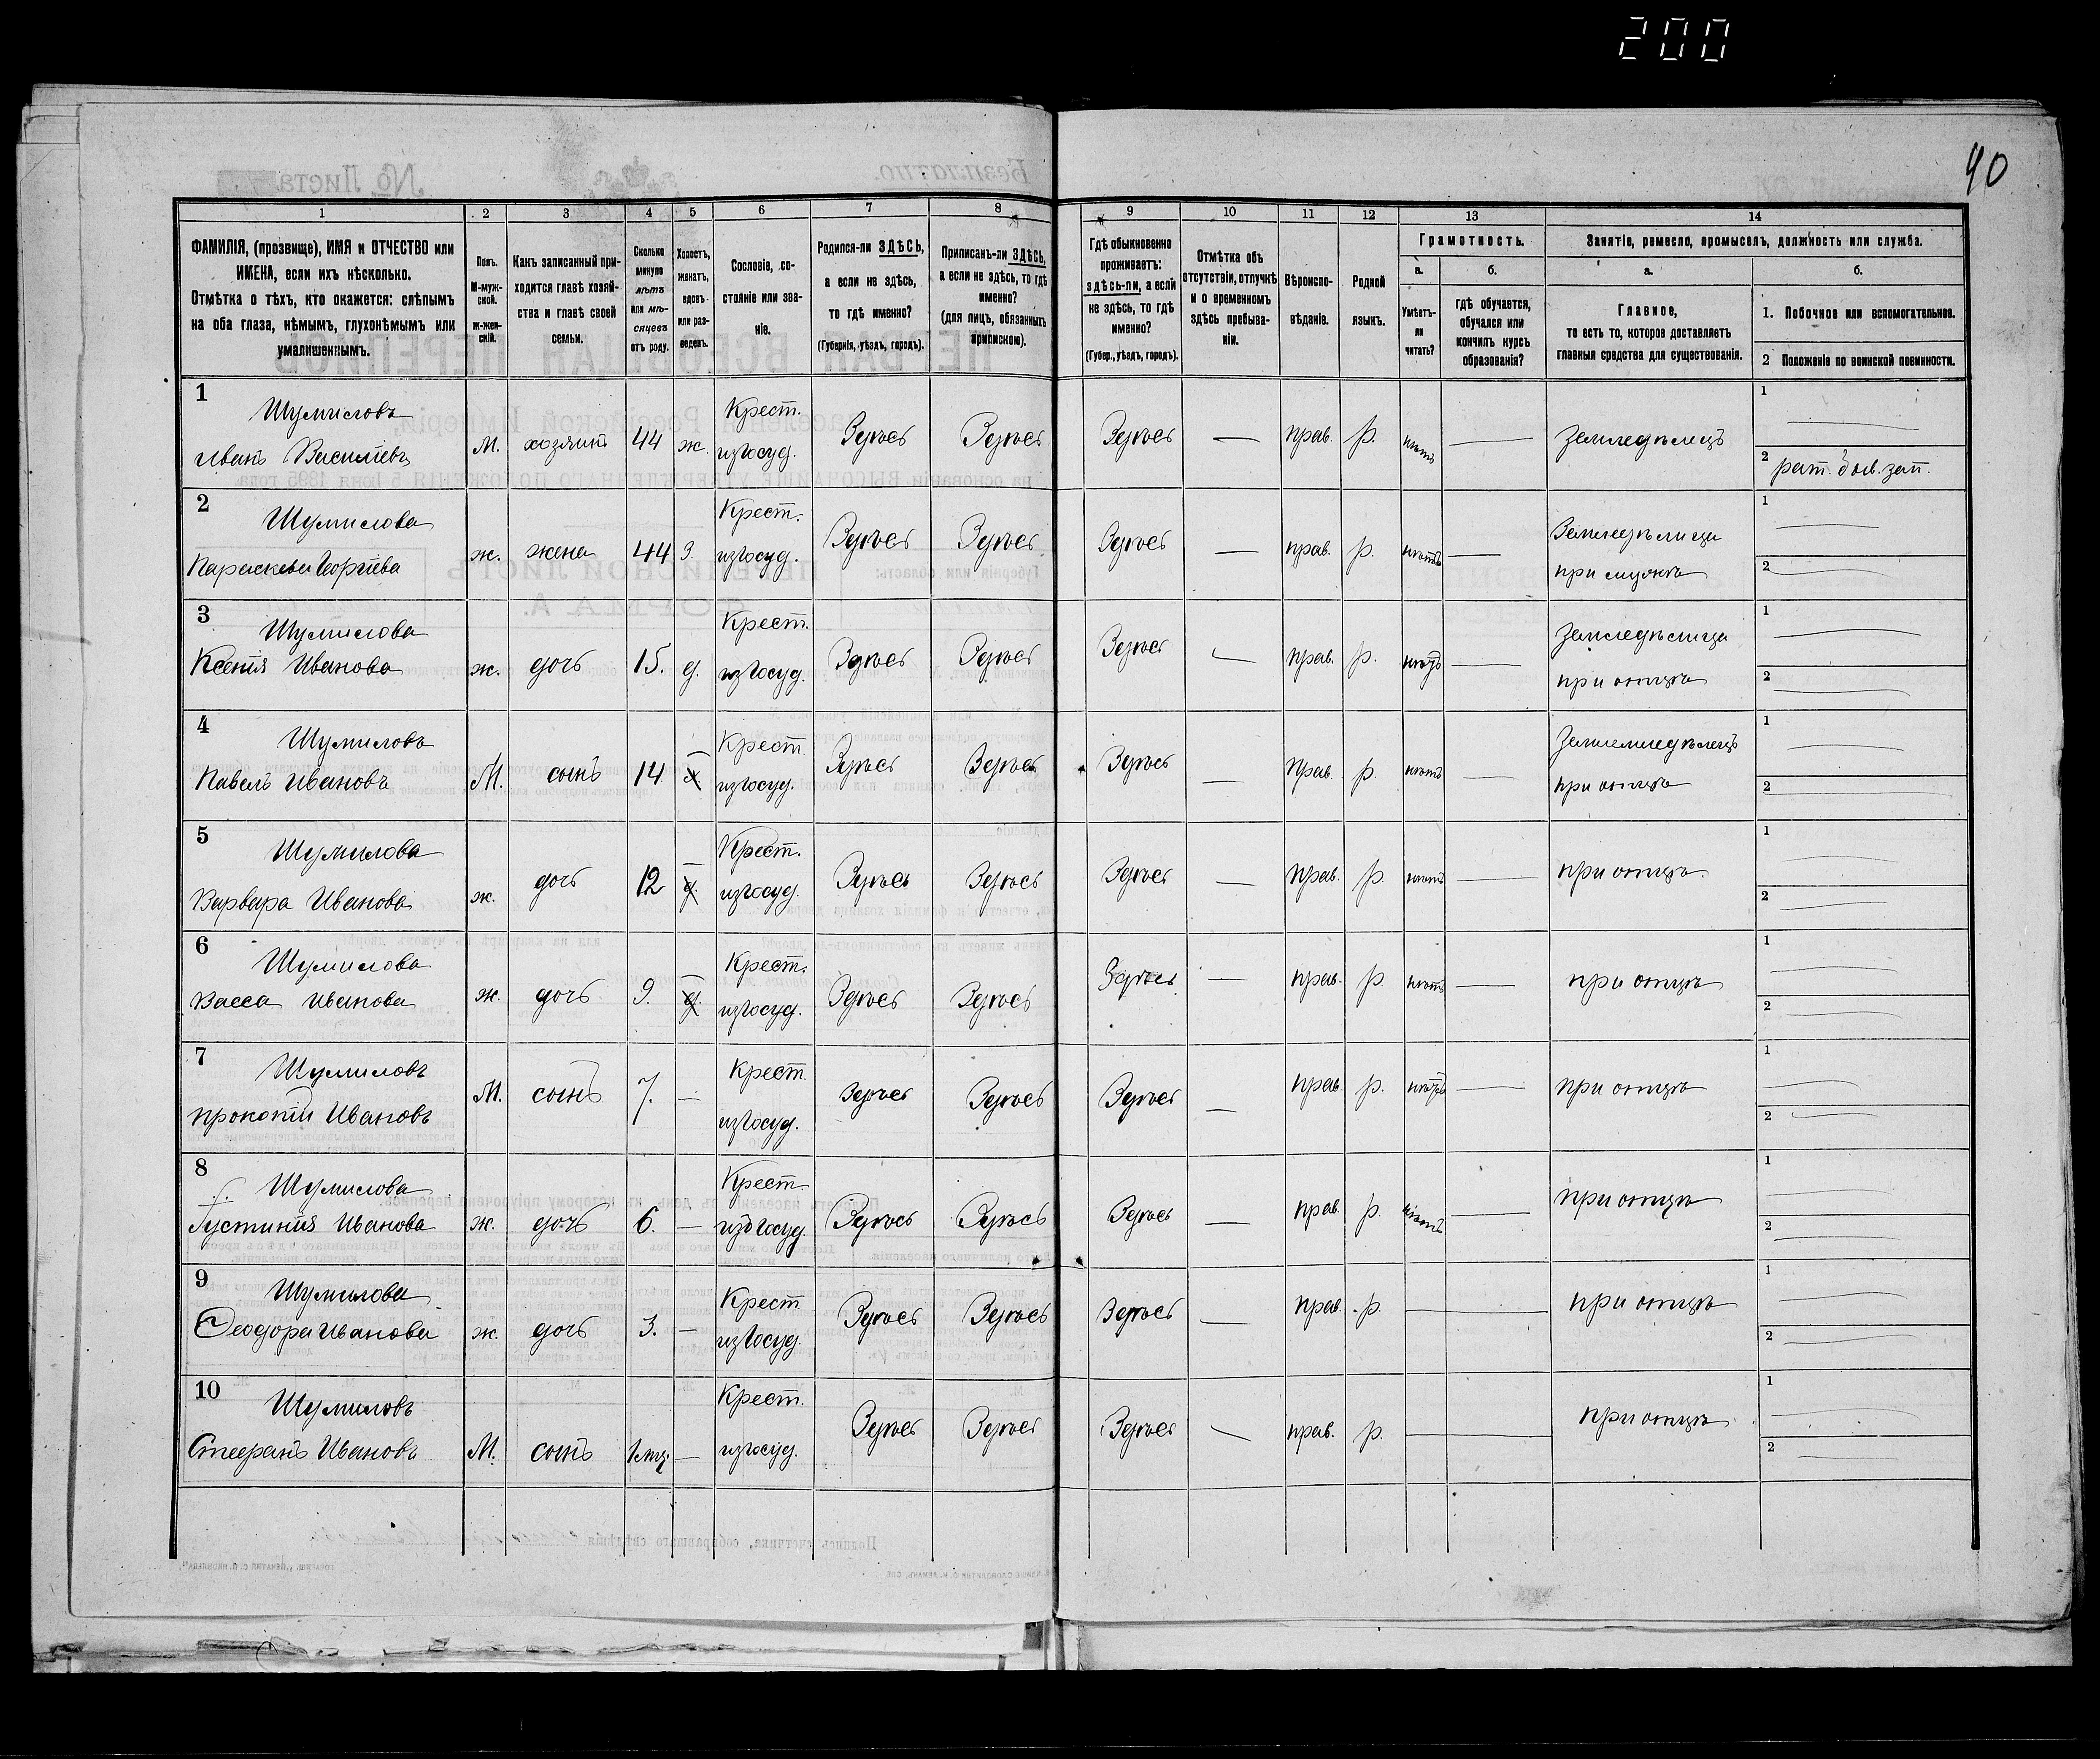 200
90
1 2 3 4 5 6 7 8 9 10 11 12 13 14
ФАМИЛІЯ, (прозвище), ИМЯ и ОТЧЕСТВО или
ИМЕНА, если ихъ нѣсколько.
Отмѣтка о тѣхъ, кто окажется: слѣпымъ
на оба глаза, нѣмымъ, глухонѣмымъ или
умалишеннымъ.
Полъ.
М-муж-
ской.
Ж-жен-
скій.
Какъ записанный при-
ходится главѣ хозяй-
ства и главѣ своей
семьи.
Сколько
минуло
лѣтъ
или мѣ-
сяцевъ
отъ роду.
Холостъ,
женатъ,
вдовъ
или раз-
веденъ.
Сословіе, со-
стояніе или зва-
ніе.
Родился-ли ЗДѢСЬ,
а если не здѣсь,
то гдѣ именно?
(Губернія, уѣздъ, городъ).
Приписанъ-ли ЗДѢСЬ,
а если не здѣсь, то гдѣ
именно?
(для лицъ, обязанныхъ
припискою).
Гдѣ обыкновенно
проживаетъ:
здѣсь-ли, а если
не здѣсь, то гдѣ
именно?
(Губер., уѣздъ, городъ).
Отмѣтка объ
отсутствіи, отлучкѣ
и о временномъ
здѣсь пребыва-
ніи.
Вѣроиспо-
вѣданіе.
Родной
языкъ.
Грамотность.
а.
Умѣетъ-
ли
читать?
б.
гдѣ обучается,
обучался или
кончилъ курсъ
образованія?
Занятіе, ремесло, промыселъ, должность или служба.
а.
Главное,
то есть то, которое доставляетъ
главныя средства для существованія.
б.
1. Побочное или вспомогательное.
2 Положеніе по воинской повинности.
1
Шумиловъ
Иванъ Васильевъ
М. хозяинъ 44 ж.
Крест.
изъ госуд.
Здѣсь Здѣсь Здѣсь — прав. р. нѣтъ — Земледѣлецъ
1 —
2 рат. был. зап.
2
Шумилова
Параскева Георгіева
ж. жена 44 з.
Крест.
изъ госуд.
Здѣсь Здѣсь Здѣсь — прав. р. нѣтъ —
Земледѣлица
при мужѣ
1 —
2 —
3
Шумилова
Ксенія Иванова
ж. дочь 15. д.
Крест.
изъ госуд.
Здѣсь Здѣсь Здѣсь — прав. р. нѣтъ —
Земледѣлица
при отцѣ
1 —
2 —
4
Шумиловъ
Павелъ Ивановъ
М. сынъ 14 —
Крест.
изъ госуд.
Здѣсь Здѣсь Здѣсь — прав. р. нѣтъ —
Землемледѣлецъ
при отцѣ
1 —
2 —
5
Шумилова
Варвара Иванова
ж. дочь 12 —
д.
Крест.
изъ госуд.
Здѣсь Здѣсь Здѣсь — прав. р. нѣтъ — при отцѣ
1 —
2 —
6
Шумилова
Васса Иванова
ж. дочь 9. —
д.
Крест.
изъ госуд.
Здѣсь Здѣсь Здѣсь — прав. р. нѣтъ — при отцѣ
1 —
2 —
7
Шумиловъ
Прокопій Ивановъ
М. сынъ 7. —
Крест.
изъ госуд.
Здѣсь Здѣсь Здѣсь — прав. р. нѣтъ — при отцѣ
1 —
2 —
8
Шумилова
Іустинія Иванова
ж. дочь 6. —
Крест.
изъ госуд.
Здѣсь Здѣсь Здѣсь — прав. р. нѣтъ — при отцѣ
1 —
2 —
9
Шумилова
Феодора Иванова
ж. дочь 3. —
Крест
изъ госуд.
Здѣсь Здѣсь Здѣсь — прав. р. — при отцѣ
1 —
2 —
10
Шумиловъ
Стефанъ Ивановъ
М. сынъ —
Крест.
изъ госуд.
Здѣсь Здѣсь Здѣсь — прав. р. — при отцѣ
1 —
2 —